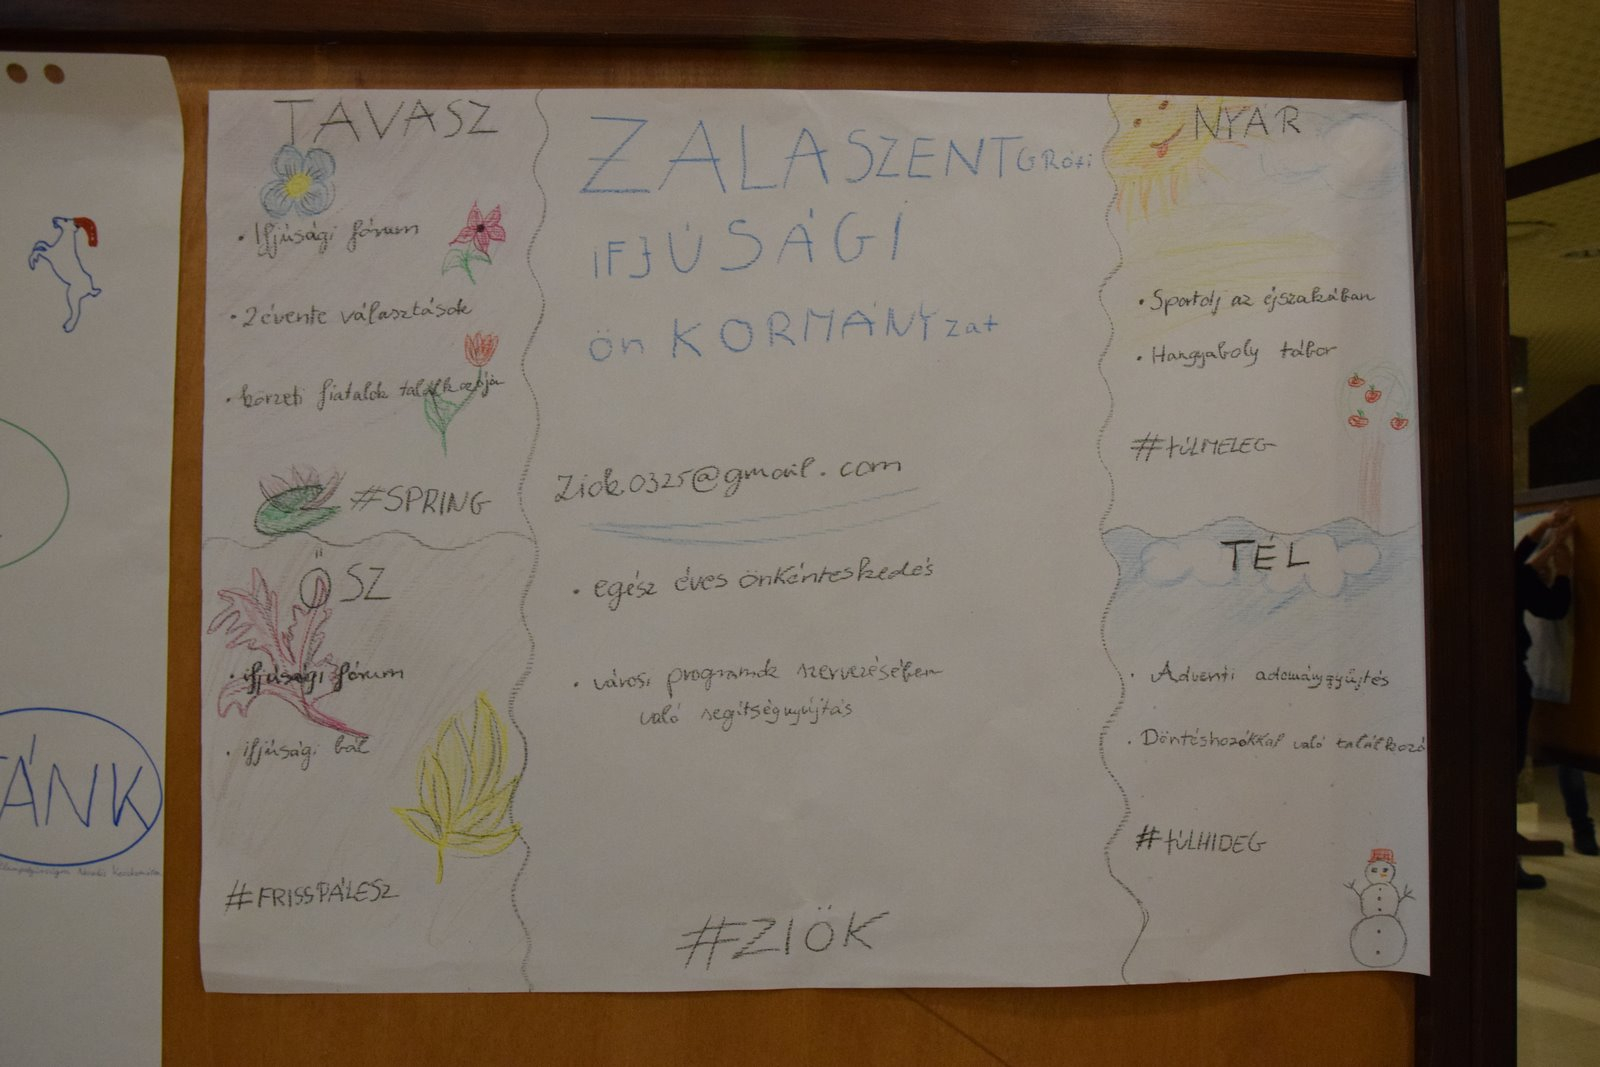 TAVASZ
• Ifjúsági fórum
• 2évente választások
• körzeti fiatalok találkozója
#SPRING
ŐSZ
• ifjúsági fórum
• ifjúsági bál
#FRISSPÁLESZ
ZALASZENTGRóti
IFJÚSÁGI
önKORMÁNYzat
Ziok0325@gmail.com
• egész éves önkénteskedés
• városi programok szervezésében
való segítségnyújtás
#ZIÖK
NYÁR
• Sportolj az éjszakában
• Hangyaboly tábor
#tÚLMELEG
TÉL
• Adventi adománygyűjtés
• Döntéshozókkal való találkozó
#tÚLHIDEG
ÁNK